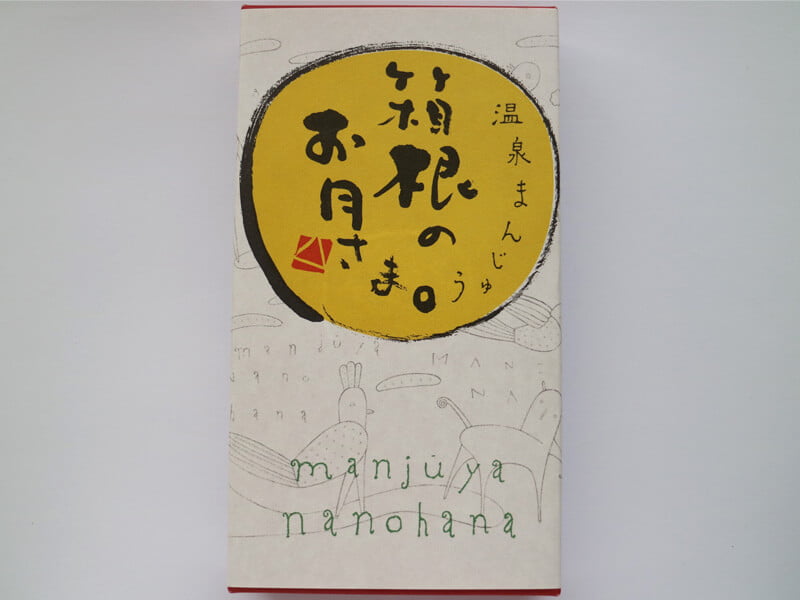 温泉まんじゅう
箱根の
お月さま。
manjūya
nano
hana
MAN-
NA
manjūya
nanohana